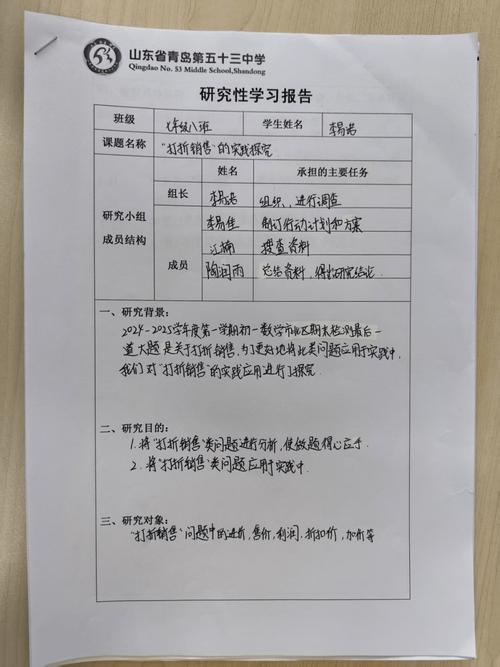 山东省青岛第五十三中学
Qingdao No. 53 Middle School,Shandong
研究性学习报告
班级 七年级八班 学生姓名 李易诺
课题名称 "打折销售"的实践探究
研究小组成员结构 姓名 承担的主要任务
组长 李易诺 组织、进行调查
成员 李易佳 制订行动计划和方案
江楠 搜查资料
陶润雨 总结资料,得出研究结论
一、研究背景:
2024-2025学年度第一学期初一数学市北区期末检测最后一
道大题是关于打折销售,为了更好地将此类问题应用于实践中,
我们对"打折销售"的实践应用进行了探究.
二、研究目的:
1.将"打折销售"类问题进行分析,使做题得心应手.
2.将"打折销售"类问题应用于实践中.
三、研究对象:
"打折销售"问题中的进价,售价,利润,折扣价,加价等